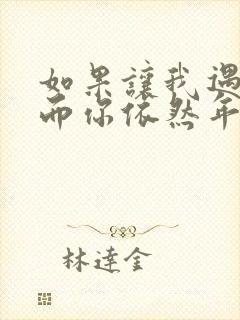 如果讓我遇
而你依然年
林達金